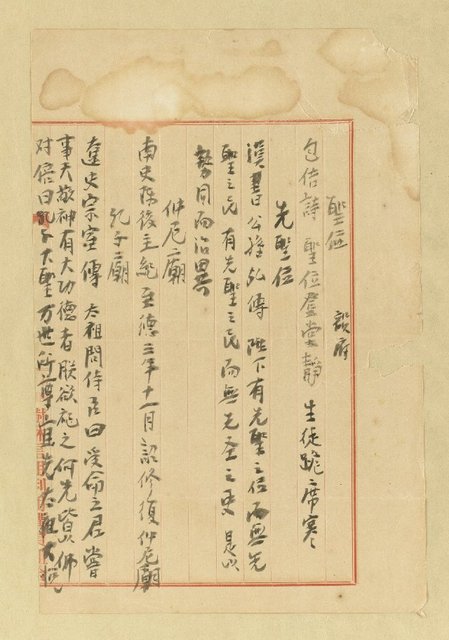 聖位
韻府
包佶詩 聖位登堂靜 生徒跪席寒
先聖位
漢書公孫弘傳 陛下有先聖之位而無先
聖之民 有先聖之民而無先聖之吏 是以
勢同而治異
仲尼廟
南史陳後主紀 至德三年十一月詔修復仲尼廟
孔子廟
遼史宗室傳 太祖問侍臣曰 受命之君嘗
事天敬神有大功德者朕欲祀之何先皆以佛
對倍曰孔子大聖万世所尊宜先太祖大悅